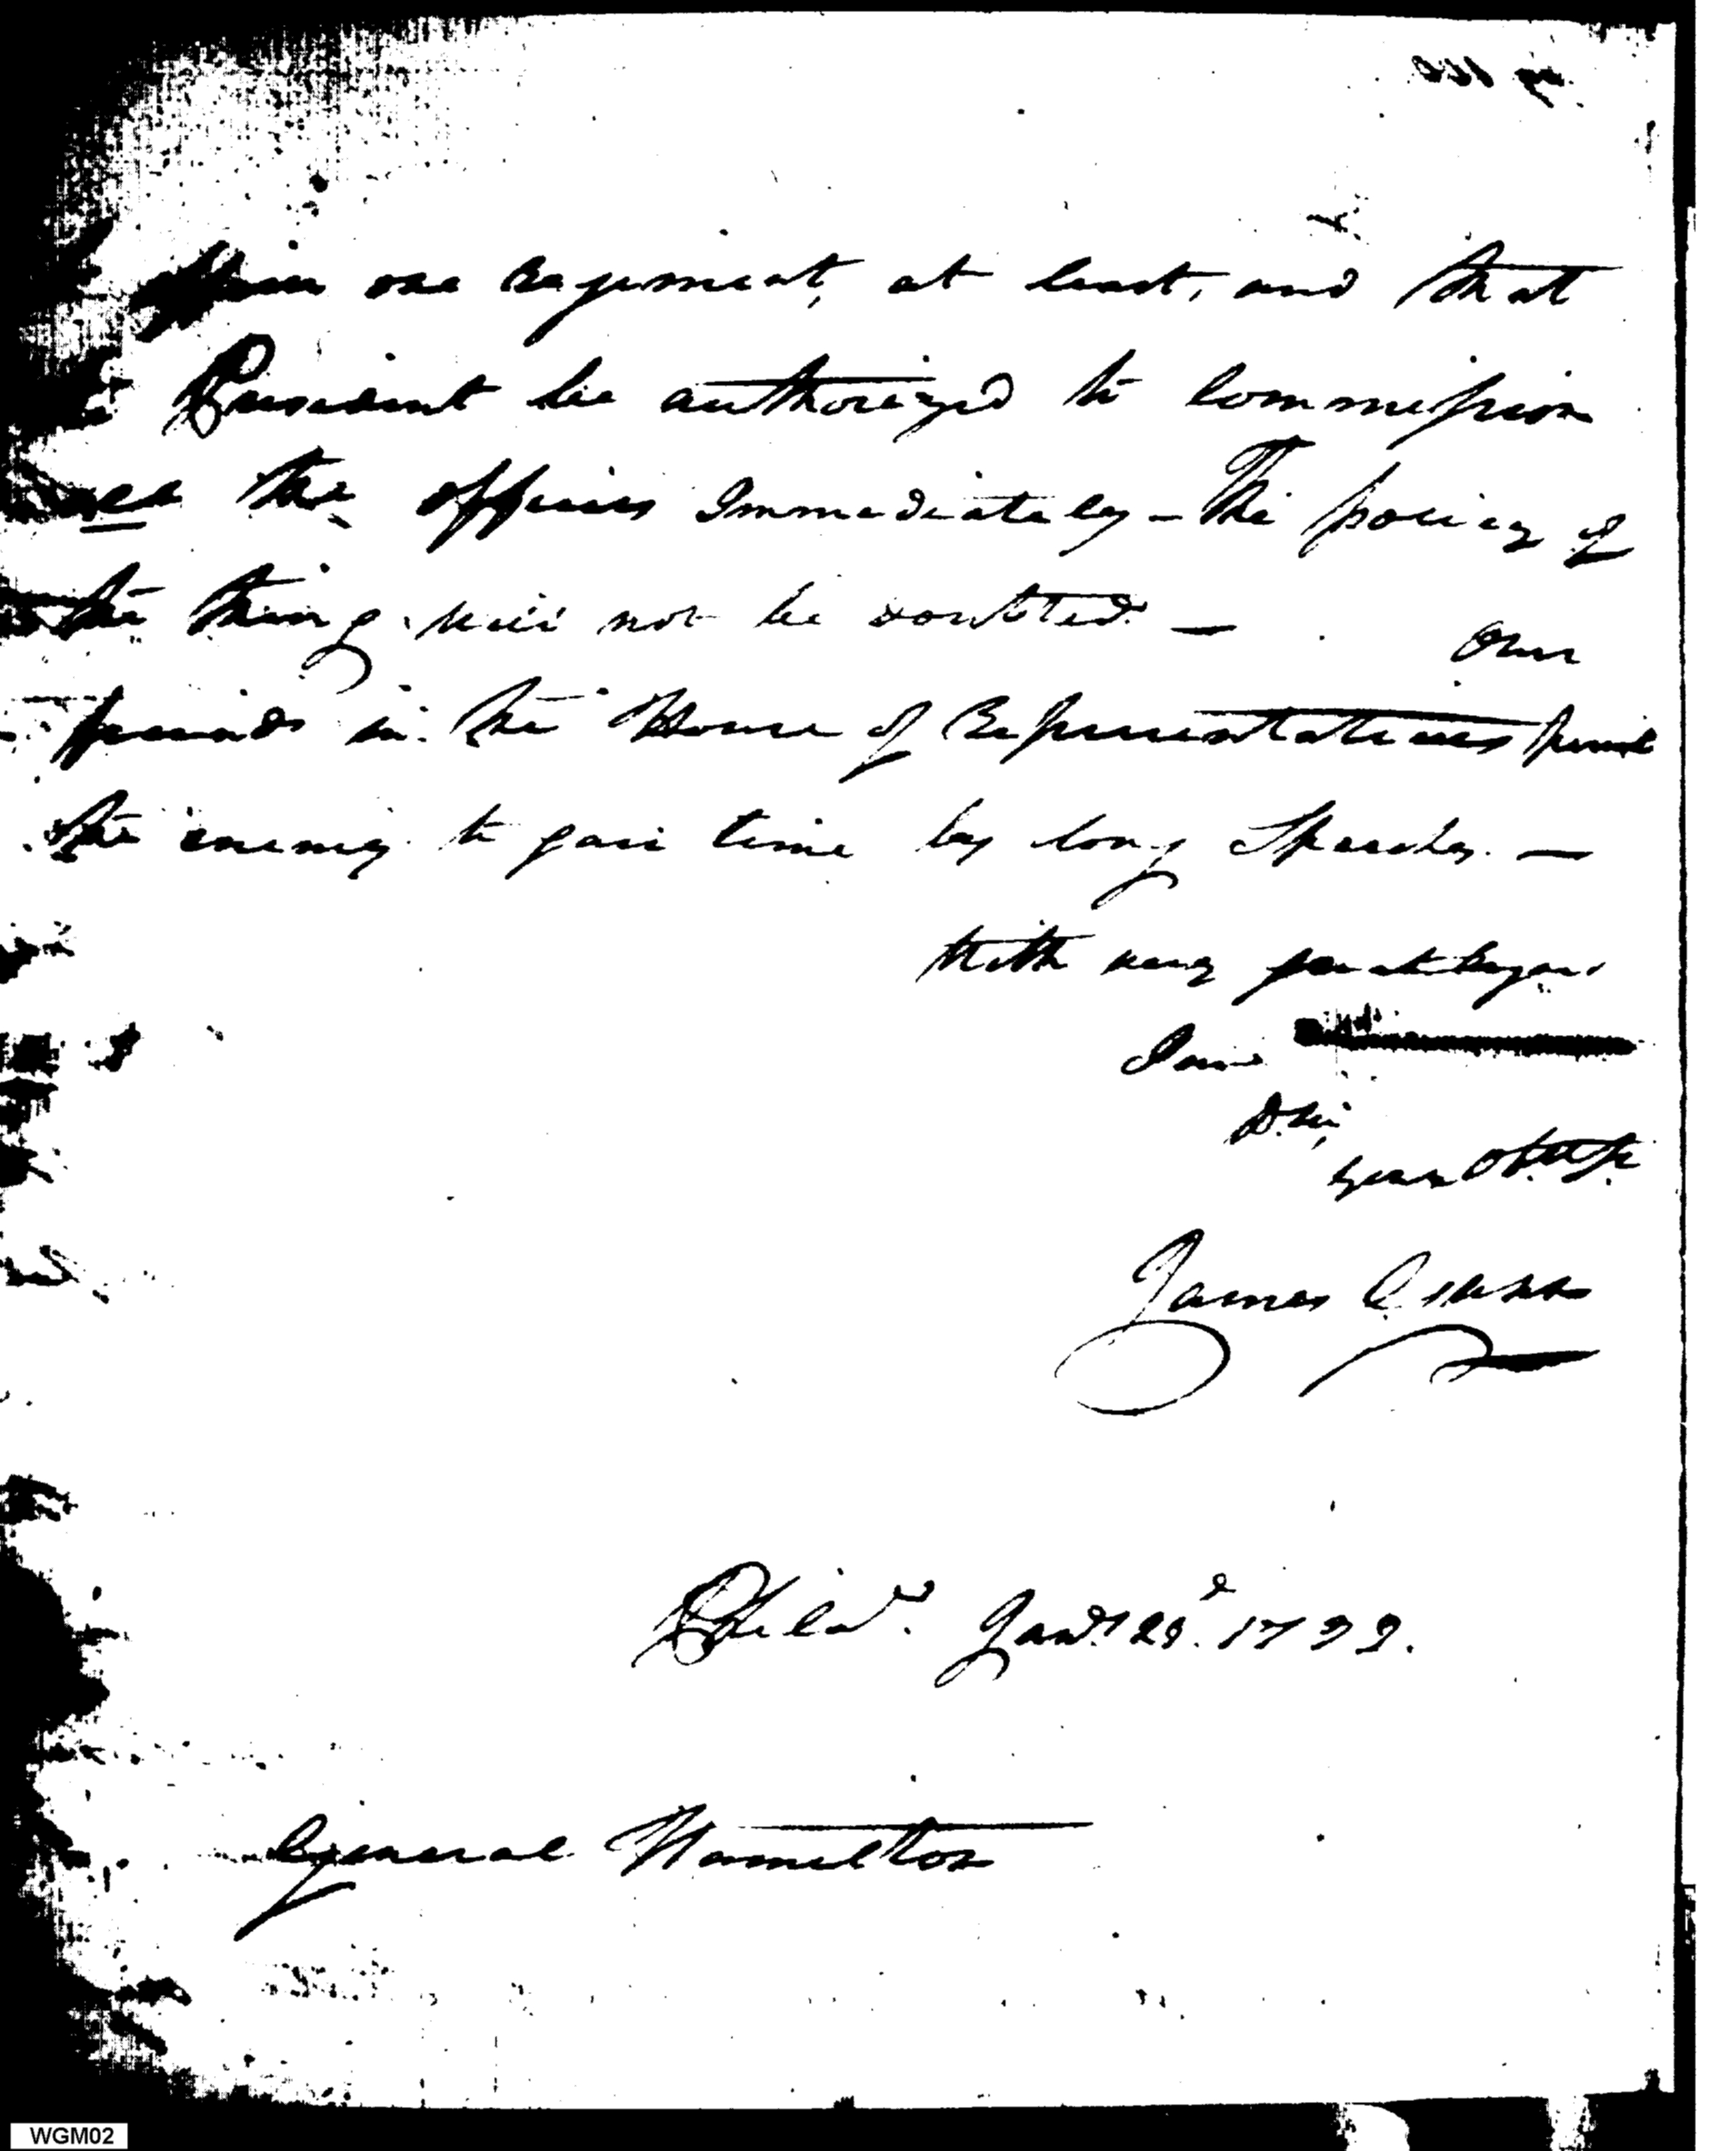 one Regiment, at least, and that
President be authorized to Commission
all the officers Immediately - The policy of
the thing will not be doubted. - Our
friends in the House of Representatives permit
the enemy to gain time by long Speeches. -
With very great Regard
I am
D. Sir,
your Ob. St.
James Gunn
Philada. Jany. 23d. 1799.
General Hamilton
WGM02